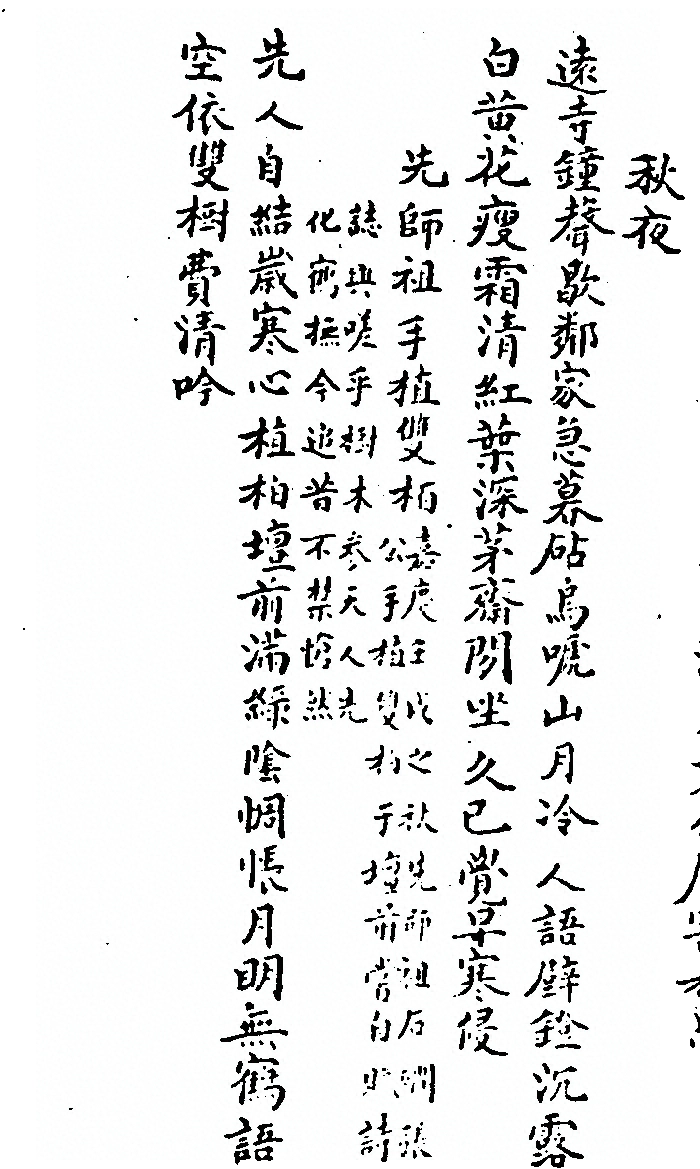 秋夜
遠寺鐘聲歇鄰家急暮砧烏啼山月冷人語壁燈沉露
白黃花瘦霜清紅葉深茅齋閒坐久已覺早寒侵
先師祖手植雙柏
嘉慶壬戌之秋先師祖石澗張
公手植雙柏于壇前嘗自賦詩
誌興嗟乎樹木參天人先
化鶴撫今追昔不禁愴然
先人自結歲寒心植柏壇前滿綠陰惆悵月明無鶴語
空依雙樹費清吟